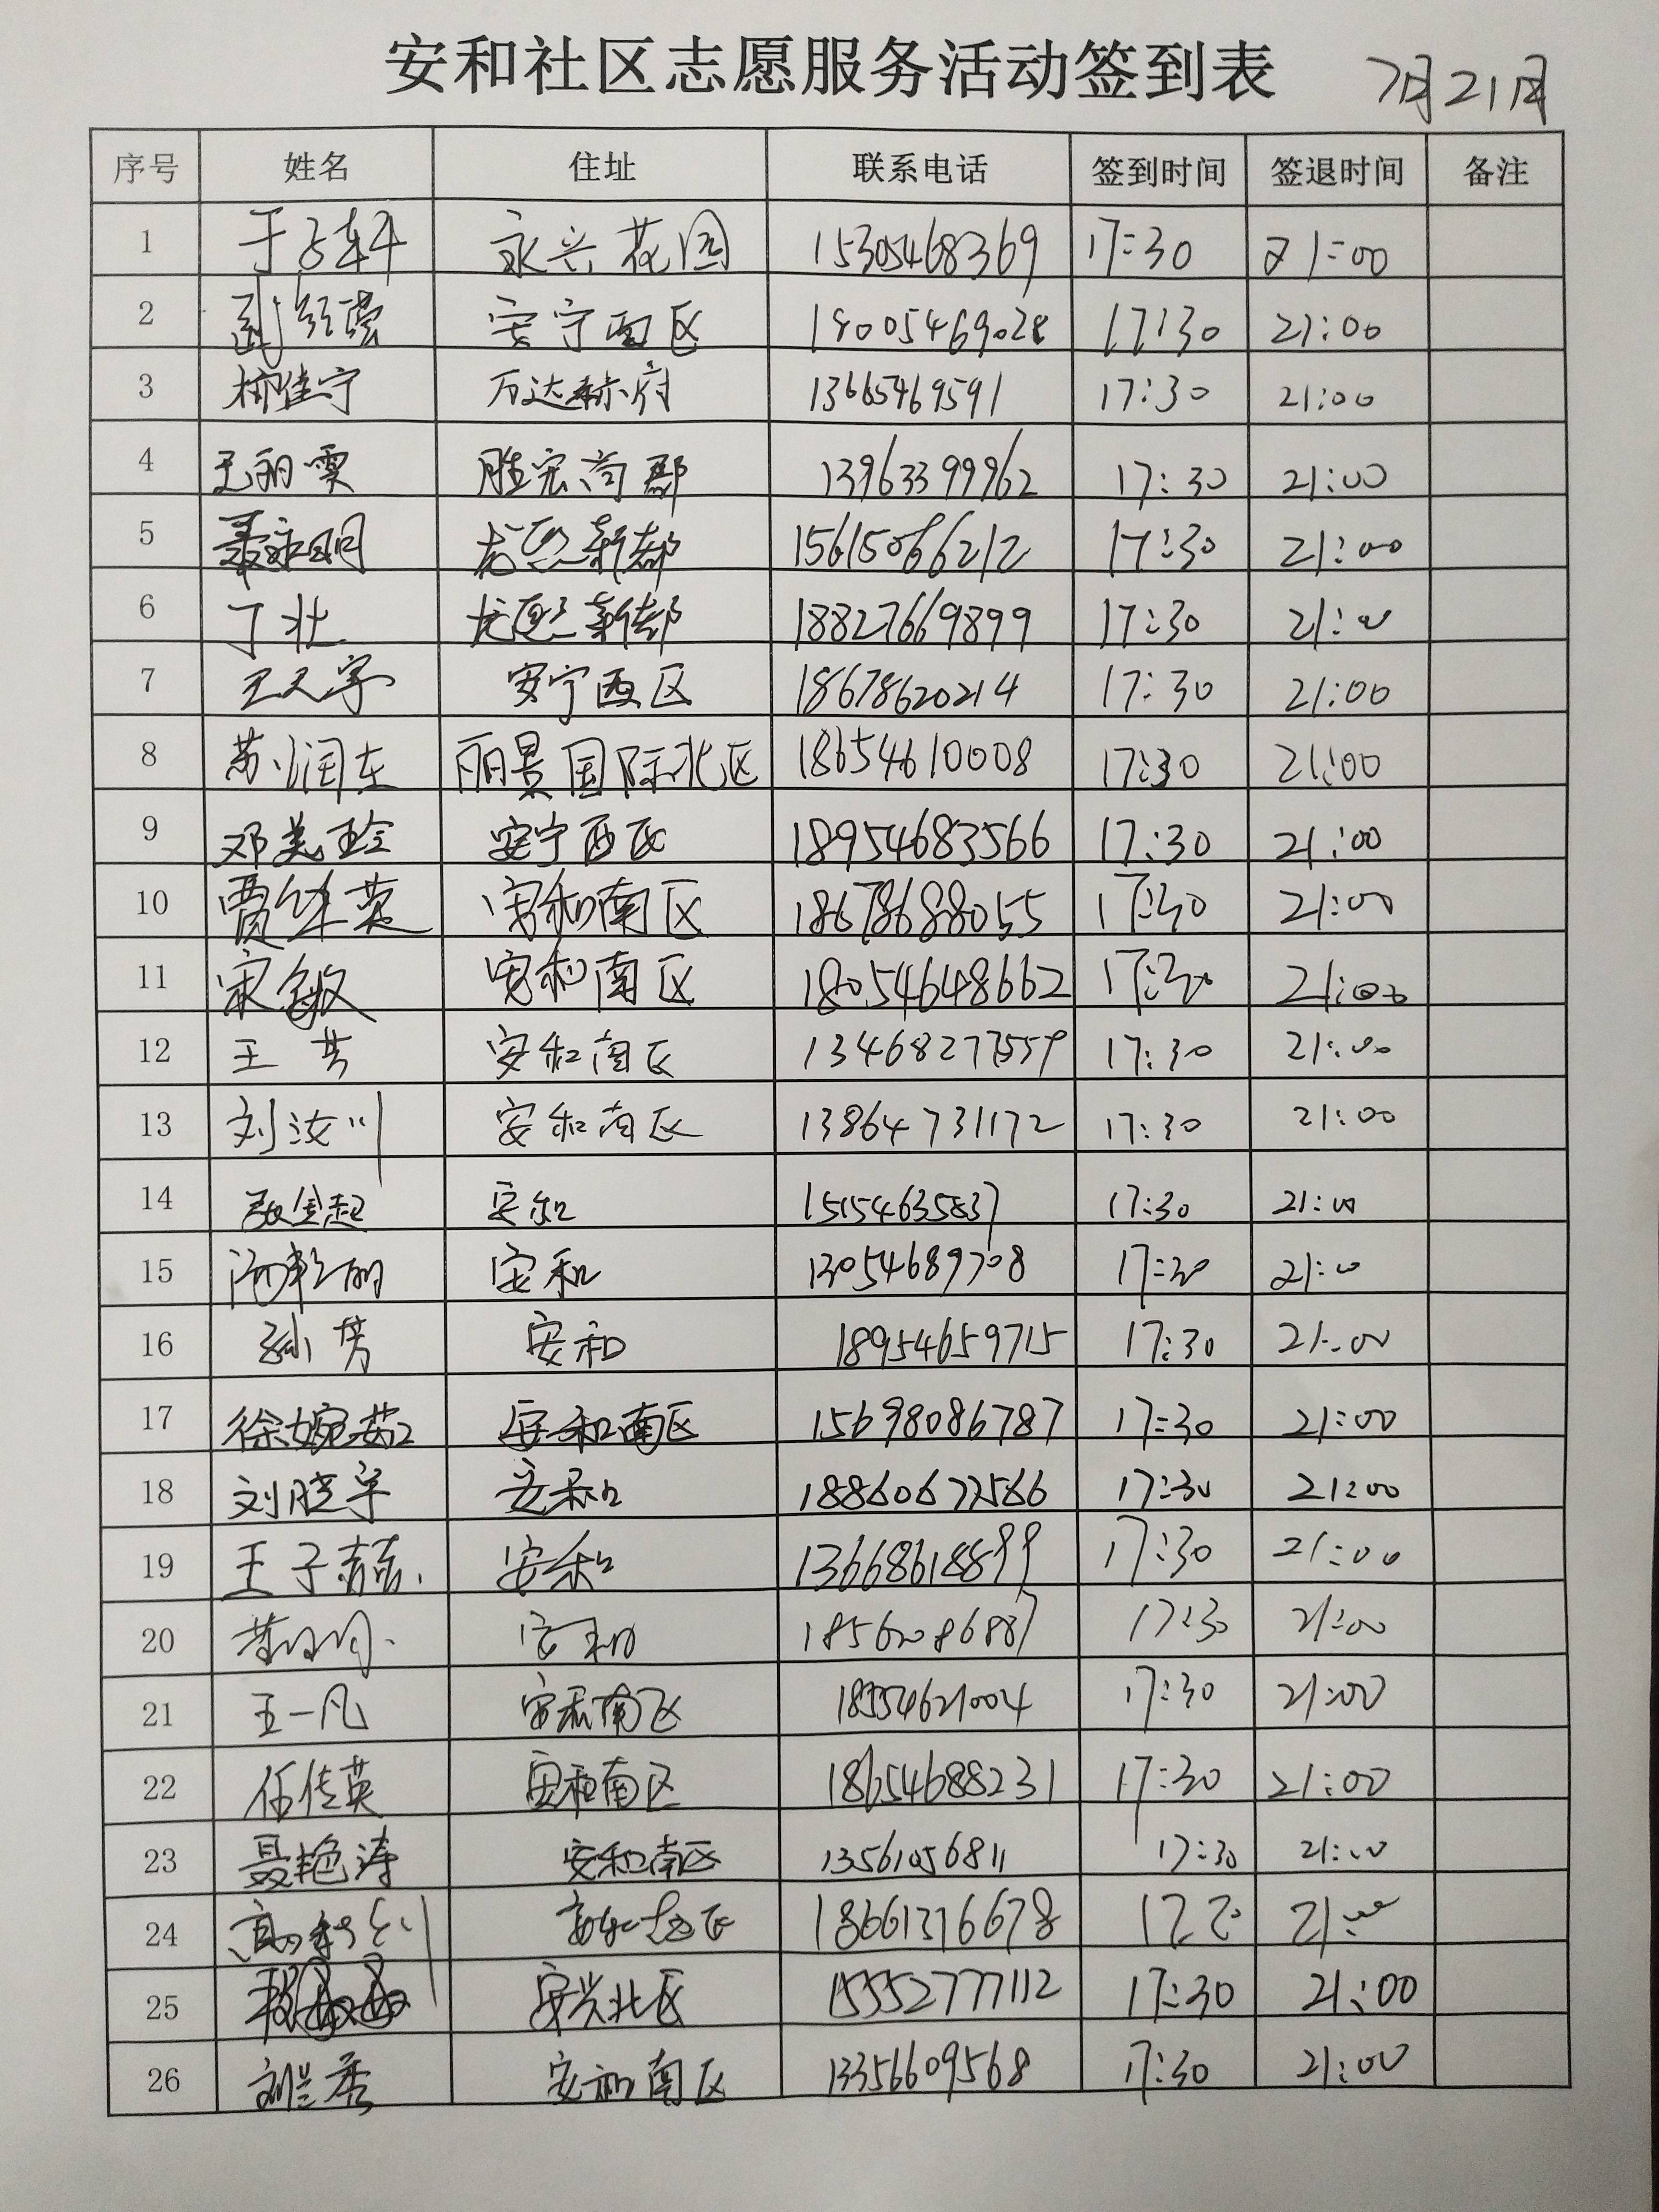 安和社区志愿服务活动签到表 7月21日
序号 姓名 住址 联系电话 签到时间 签退时间 备注
1 于子轩 永兴花园 15305468369 17:30 21:00
2 安宁西区 18005469028 17:30 21:00
3 柳佳宁 万达赫府 13665469591 17:30 21:00
4 王丽雯 胜宏尚郡 13963399962 17:30 21:00
5 聂永明 龙熙新都 15615066212 17:30 21:00
6 丁壮 龙熙新都 18827669899 17:30 21:00
7 王天宇 安宁西区 18678620214 17:30 21:00
8 苏润东 丽景国际北区 18654610008 17:30 21:00
9 邓美玲 安宁西区 18954683566 17:30 21:00
10 贾继英 安和南区 18678688055 17:30 21:00
11 宋敏 安和南区 18054648662 17:30 21:00
12 王芳 安和南区 13468277559 17:30 21:00
13 刘汝川 安和南区 13864731172 17:30 21:00
14 安和 15154635837 17:30 21:00
15 安和 13054689708 17:30 21:00
16 孙芳 安和 18954659715 17:30 21:00
17 徐婉茹 安和南区 15698086787 17:30 21:00
18 刘晓宇 安和 18860677566 17:30 21:00
19 王子喆 安和 13668618899 17:30 21:00
20 安和 18562086887 17:30 21:00
21 王一凡 安和南区 18554621004 17:30 21:00
22 任传英 安和南区 18654688231 17:30 21:00
23 聂艳涛 安和南区 13561056811 17:30 21:00
24 18661376678 21:00
25 安兴北区 15552777112 17:30 21:00
26 刘兰秀 安和南区 13356609568 17:30 21:00